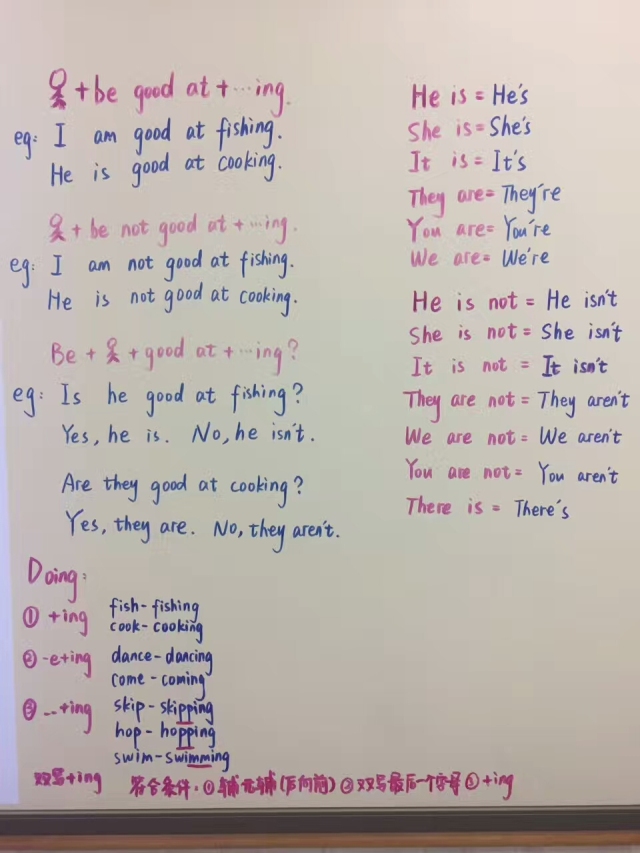 + be good at + ...ing.
eg: I am good at fishing.
He is good at cooking.
+ be not good at + ...ing.
eg: I am not good at fishing.
He is not good at cooking.
Be + + good at + ...ing?
eg: Is he good at fishing?
Yes, he is. No, he isn't.
Are they good at cooking?
Yes, they are. No, they aren't.
Doing:
① +ing fish - fishing
cook - cooking
② -e+ing dance - dancing
come - coming
③ __+ing skip - skipping
hop - hopping
swim - swimming
双写+ing 符合条件: ①辅元辅(后向前) ②双写最后一个字母 ③+ing
He is = He's
She is = She's
It is = It's
They are = They're
You are = You're
We are = We're
He is not = He isn't
She is not = She isn't
It is not = It isn't
They are not = They aren't
We are not = We aren't
You are not = You aren't
There is = There's